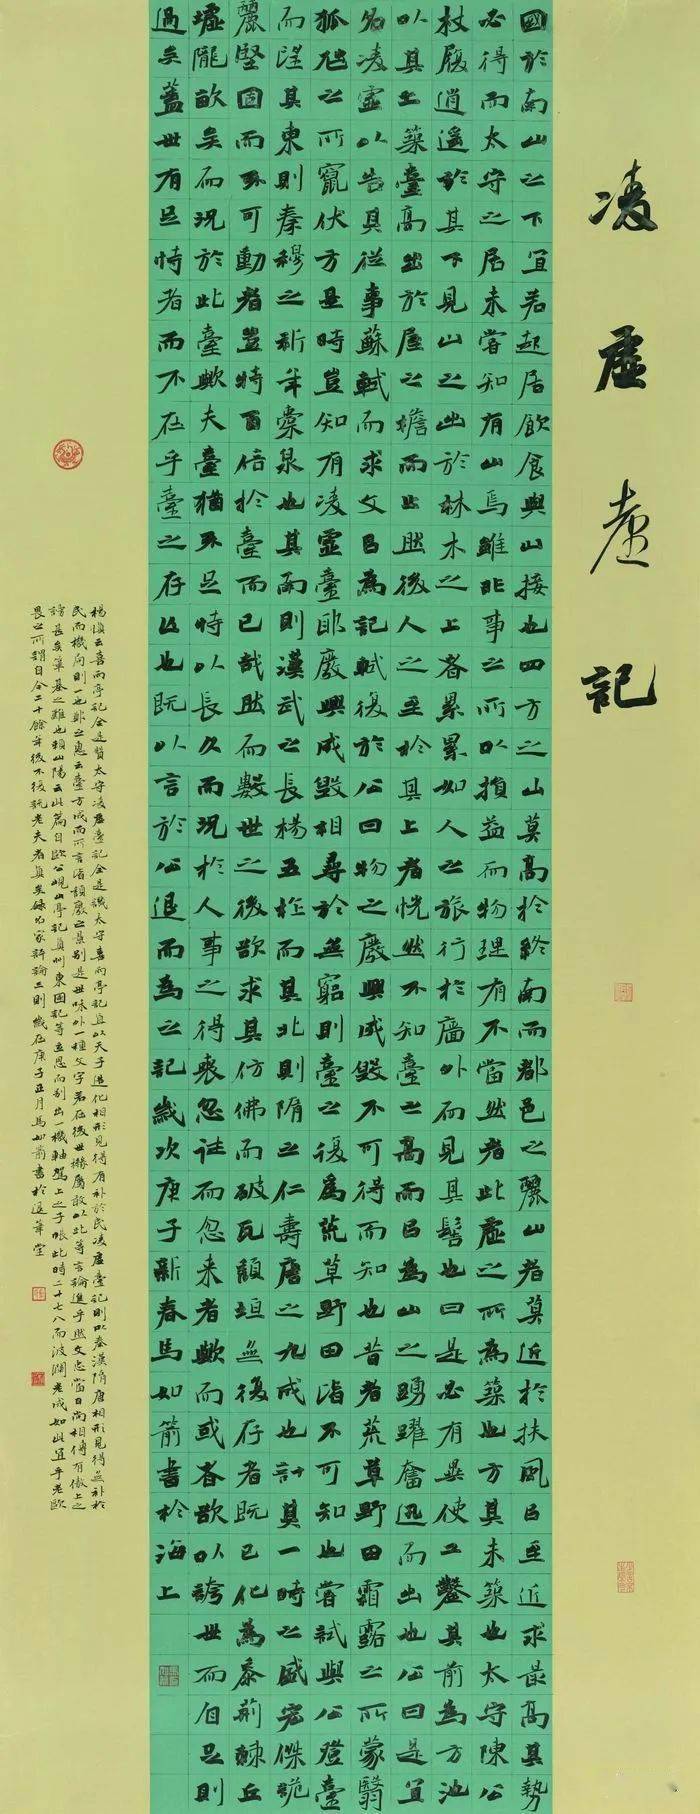 凌虛臺記
國於南山之下宜若起居飲食與山接也四方之山莫高於終南而都邑之麗山者莫近於扶風以至近求最高其勢
必得而太守之居未嘗知有山焉雖非事之所以損益而物理有不當然者此虛之所為築也方其未築也太守陳公
杖履逍遙於其下見山之出於林木之上者累累如人之旅行於牆外而見其髻也曰是必有異使工鑿其前為方池
以其土築臺高出於屋之檐而止然後人之至於其上者恍然不知臺之高而以為山之踴躍奮迅而出也公曰是宜
名凌虛以告其從事蘇軾而求文以為記軾復於公曰物之廢興成毀不可得而知也昔者荒草野田霜露之所蒙翳
狐虺之所竄伏方是時豈知有凌虛臺耶廢興成毀相尋於無窮則臺之復為荒草野田皆不可知也嘗試與公登臺
而望其東則秦穆之祈年橐泉也其南則漢武之長楊五柞而其北則隋之仁壽唐之九成也計其一時之盛宏傑詭
麗堅固而不可動者豈特百倍於臺而已哉然而數世之後欲求其仿佛而破瓦頹垣無復存者既已化為黍荊棘丘
墟隴畝矣而況於此臺歟夫臺猶不足恃以長久而況於人事之得喪忽往而忽來者歟而或者欲以誇世而自足則
過矣蓋世有足恃者而不在乎臺之存亡也既以言於公退而為之記歲次庚子新春馬如箭書於海上
楊慎云喜雨亭記全是贊太守凌虛臺記全是譏太守喜雨亭記直以天子造化相形見得有補於民凌虛臺記則以秦漢隋唐相形見得無補於
民而機局則一也鄭之惠云臺方成而所言皆頹廢之景別是世味外一種文字若在後世屬敢以此等言論進乎然文忠當日尚相傳有傲上之
謗甚矣筆之難也賴山陽云此篇自歐公峴山亭記真州東園記等立思而別出一機軸駕上之子瞻此時二十七八而波瀾老成如此宜乎老歐
畏之所謂自今二十餘年後不復說老夫者真矣錄名家評論三則歲在庚子正月馬如箭書於退筆堂